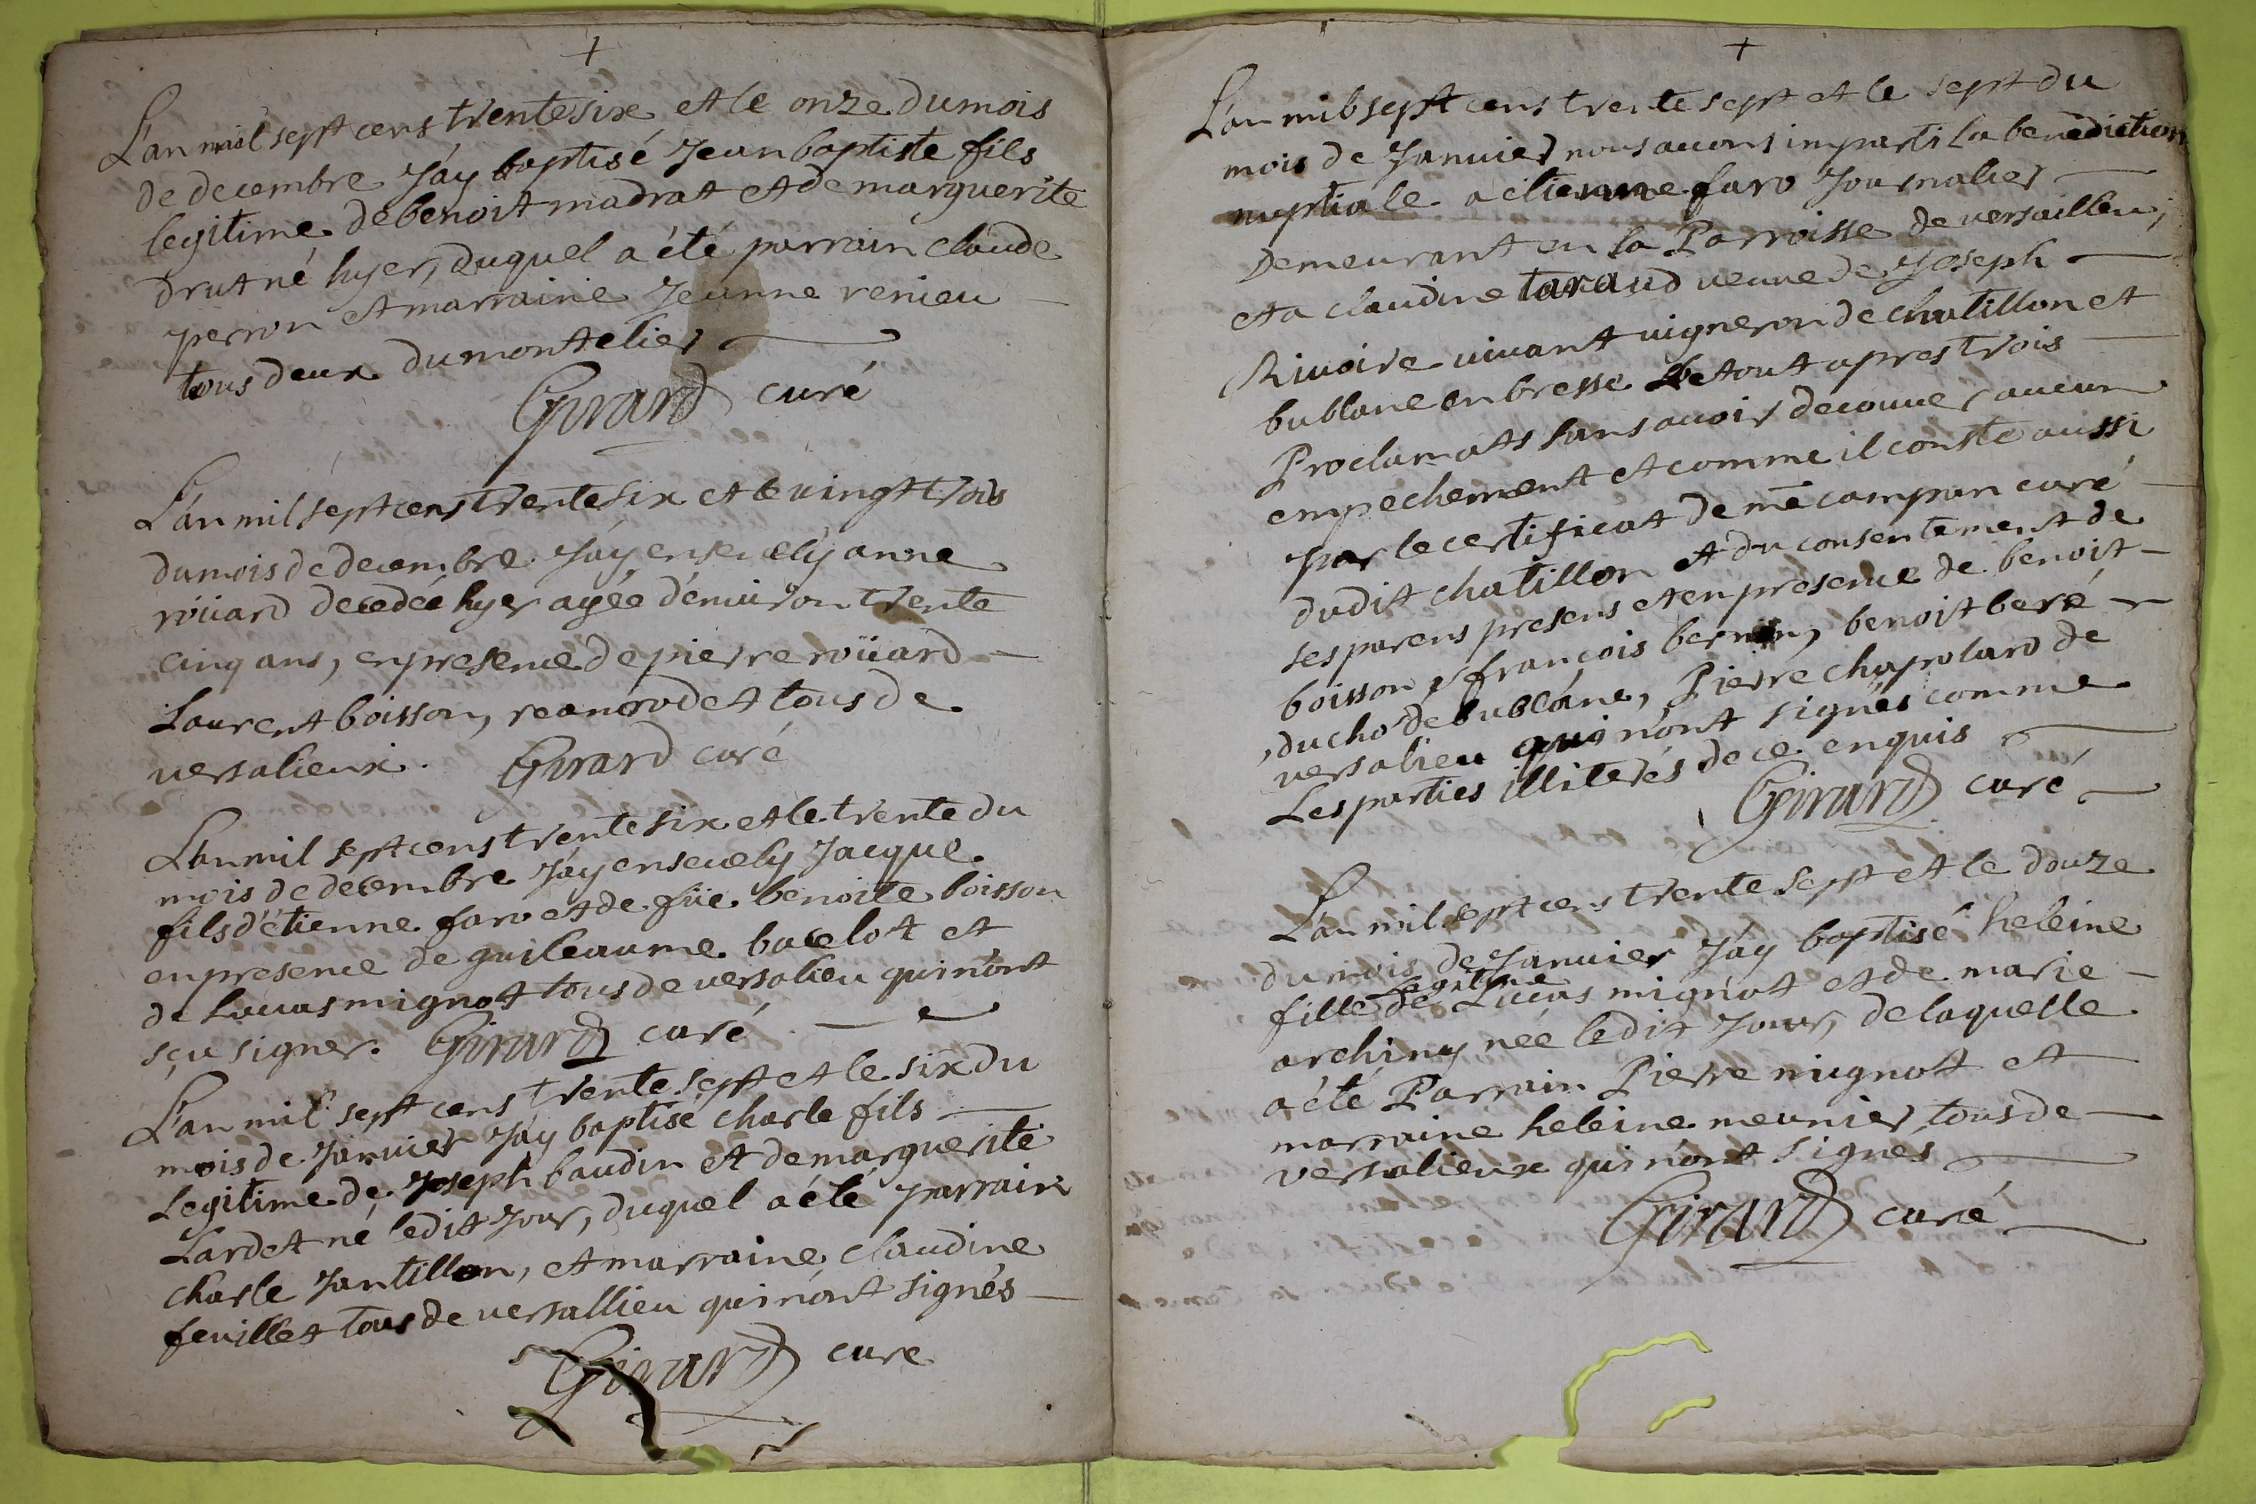 +
L'an mil sept cens trente six et le onze du mois
de decembre J'ay baptisé Jean baptiste fils
legitime de benoit madrat et de marguerite
drut né hyer, duquel a été parrain claude
perron et marraine Jeanne renieu
tous deux du montelier
Girard curé
L'an mil sept cens trente six et le vingt trois
du mois de decembre J'ay ensevely anne
roüard decedée hyer agée d'environ trente
cinq ans, en presence de pierre roüard
Laurent boisson, tous de
versalieux. Girard curé
L'an mil sept cens trente six et le trente du
mois de decembre J'ay ensevely Jacque
fils d'étienne faro et de füe benoite boisson
en presence de guileaume bacelot et
de Lucas mignot tous de versalieu qui n'ont
sçu signer. Girard curé
L'an mil sept cens trente sept et le six du
mois de Janvier J'ay baptisé charle fils
Legitime de Joseph baudin et de marguerite
Lardet né ledit Jour, duquel a été parrain
charle Jantillon, et marraine claudine
feuillet tous de versallieu qui n'ont signés
Girard cure
+
L'an mil sept cens trente sept et le sept du
mois de Janvier nous avons imparti la benediction
nuptiale a etienne faro Journalier
Demeurant en la Parroisse de versallieu,
et a claudine taraud veuve de Joseph
Rivoire vivant vigneron de chatillon et
bublane en bresse le tout apres trois
Proclamats sans avoir decouver aucun
empechement et comme il conste aussi
par le certificat de mre compan curé
dudit chatillon et du consentement de
ses parens presens et en presence de benoit
boisson, françois bernin, benoit beré
du cho de bublane, Pierre chapolard de
versalieu qui n'ont signés comme
Les parties illiterés de ce enquis
Girard curé
L'an mil sept cens trente sept et le douze
du mois de Janvier J'ay baptisé heleine
Legitime
fille de Lucas mignot et de marie
archiny née ledit Jour, de laquelle
a été Parrain Pierre mignot et
marraine heleine meunier tous de
versalieux qui n'ont signes
Girard curé